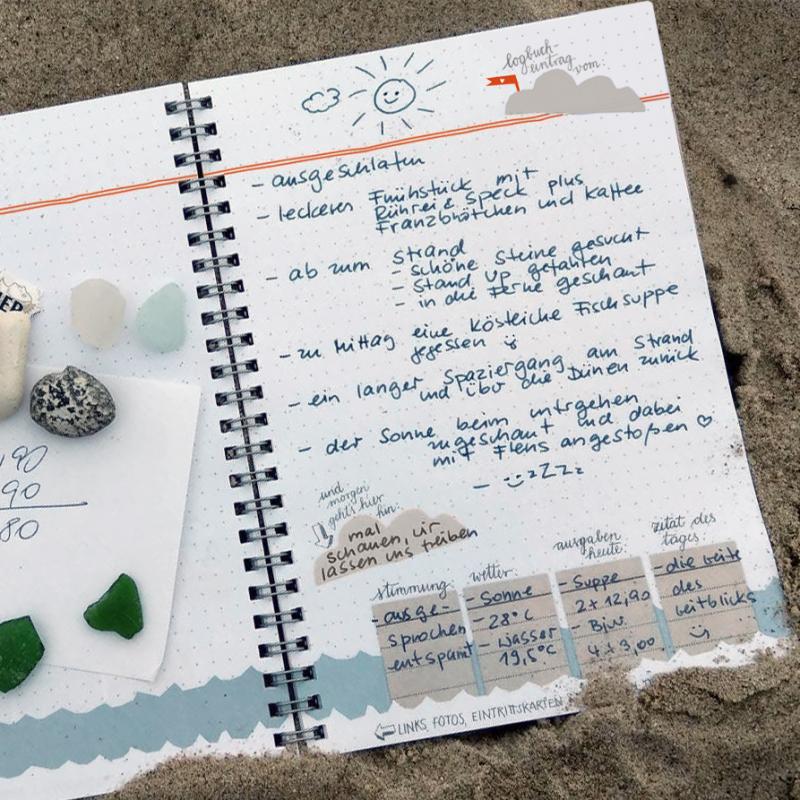 logbuch-
eintrag
vom:
- ausgeschlafen
- leckeres Frühstück mit
Rührei & Speck plus
Franzbrötchen und Kaffee
- ab zum Strand
- schöne Steine gesucht
- Stand up gefahren
- in die Ferne geschaut
- zu Mittag eine köstliche Fischsuppe
gegessen
- ein langer Spaziergang am Strand
und über die Dünen zurück
- der Sonne beim untrgehen
zugeschaut und dabei
mit Flens angestoßen ♡
- zZZz
und
morgen
geht's hier
hin:
mal
schauen, wir
lassen uns treiben
stimmung:
- ausge-
sprochen
entspannt
wetter:
- Sonne
- 28°C
- Wasser
19,5°C
ausgaben
heute:
- Suppe
2x 12,90
- Bier
4x3,00
zitat des
tages:
- die Weite
des
Weitblicks
LINKS, FOTOS, EINTRITTSKARTEN
,90
90
80